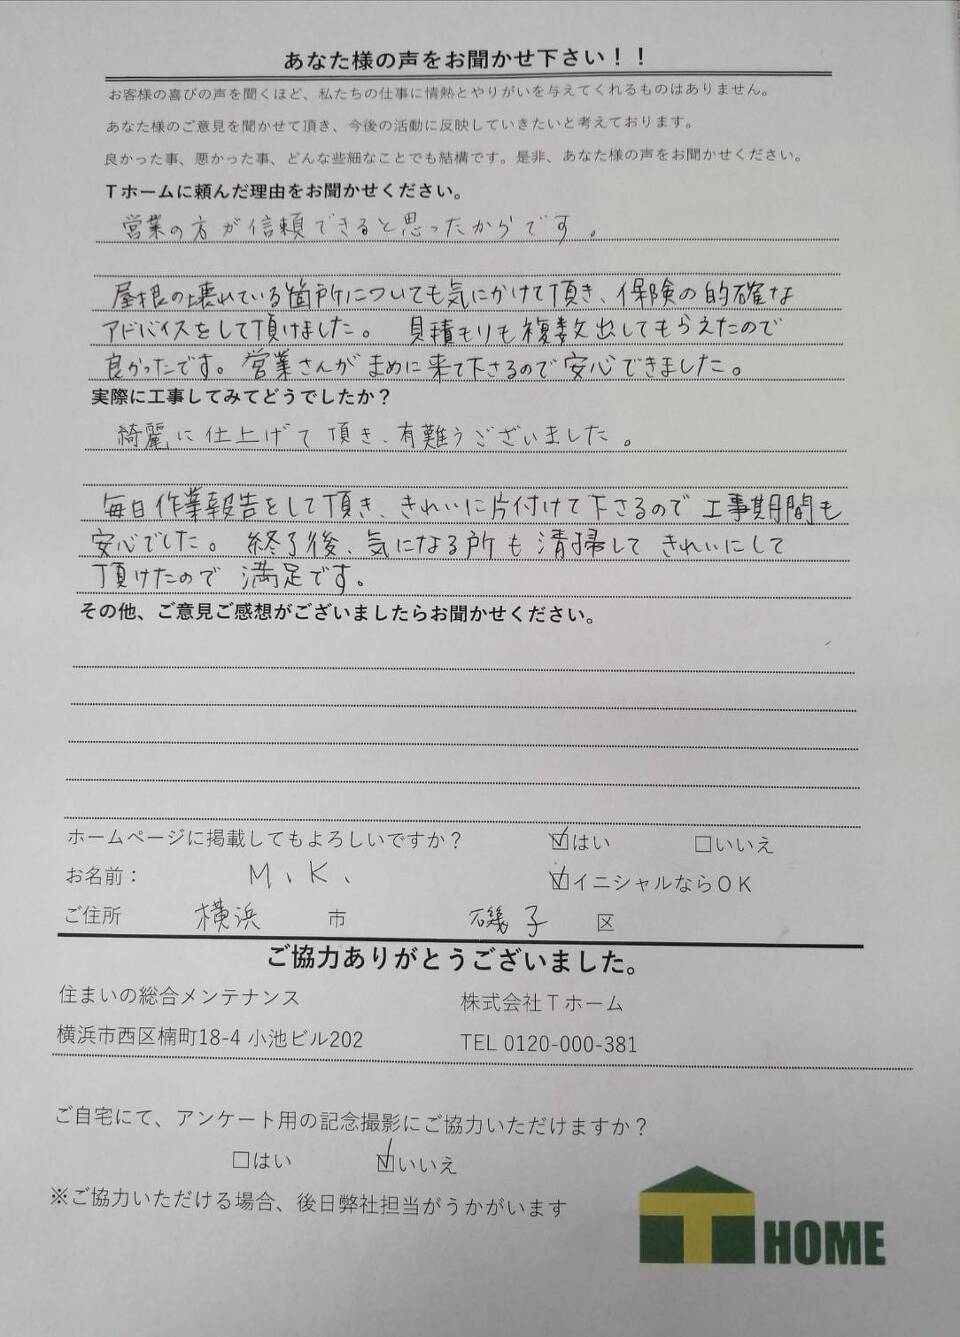 あなた様の声をお聞かせ下さい！！
お客様の喜びの声を聞くほど、私たちの仕事に情熱とやりがいを与えてくれるものはありません。
あなた様のご意見を聞かせて頂き、今後の活動に反映していきたいと考えております。
良かった事、悪かった事、どんな些細なことでも結構です。是非、あなた様の声をお聞かせください。
Tホームに頼んだ理由をお聞かせください。
営業の方が信頼できると思ったからです。
屋根の壊れている箇所についても気にかけて頂き、保険の的確な
アドバイスをして頂けました。 見積もりも複数出してもらえたので
良かったです。営業さんがまめに来て下さるので安心できました。
実際に工事してみてどうでしたか？
綺麗に仕上げて頂き、有難うございました。
毎日作業報告をして頂き、きれいに片付けて下さるので工事期間も
安心でした。 終了後、気になる所も清掃してきれいにして
頂けたので満足です。
その他、ご意見ご感想がございましたらお聞かせください。
ホームページに掲載してもよろしいですか？ ☑はい □いいえ
お名前： M、K、 ☑イニシャルならOK
ご住所 横浜 市 磯子 区
ご協力ありがとうございました。
住まいの総合メンテナンス 株式会社Tホーム
横浜市西区楠町18-4 小池ビル202 TEL 0120-000-381
ご自宅にて、アンケート用の記念撮影にご協力いただけますか？
□はい ☑いいえ
※ご協力いただける場合、後日弊社担当がうかがいます
T HOME